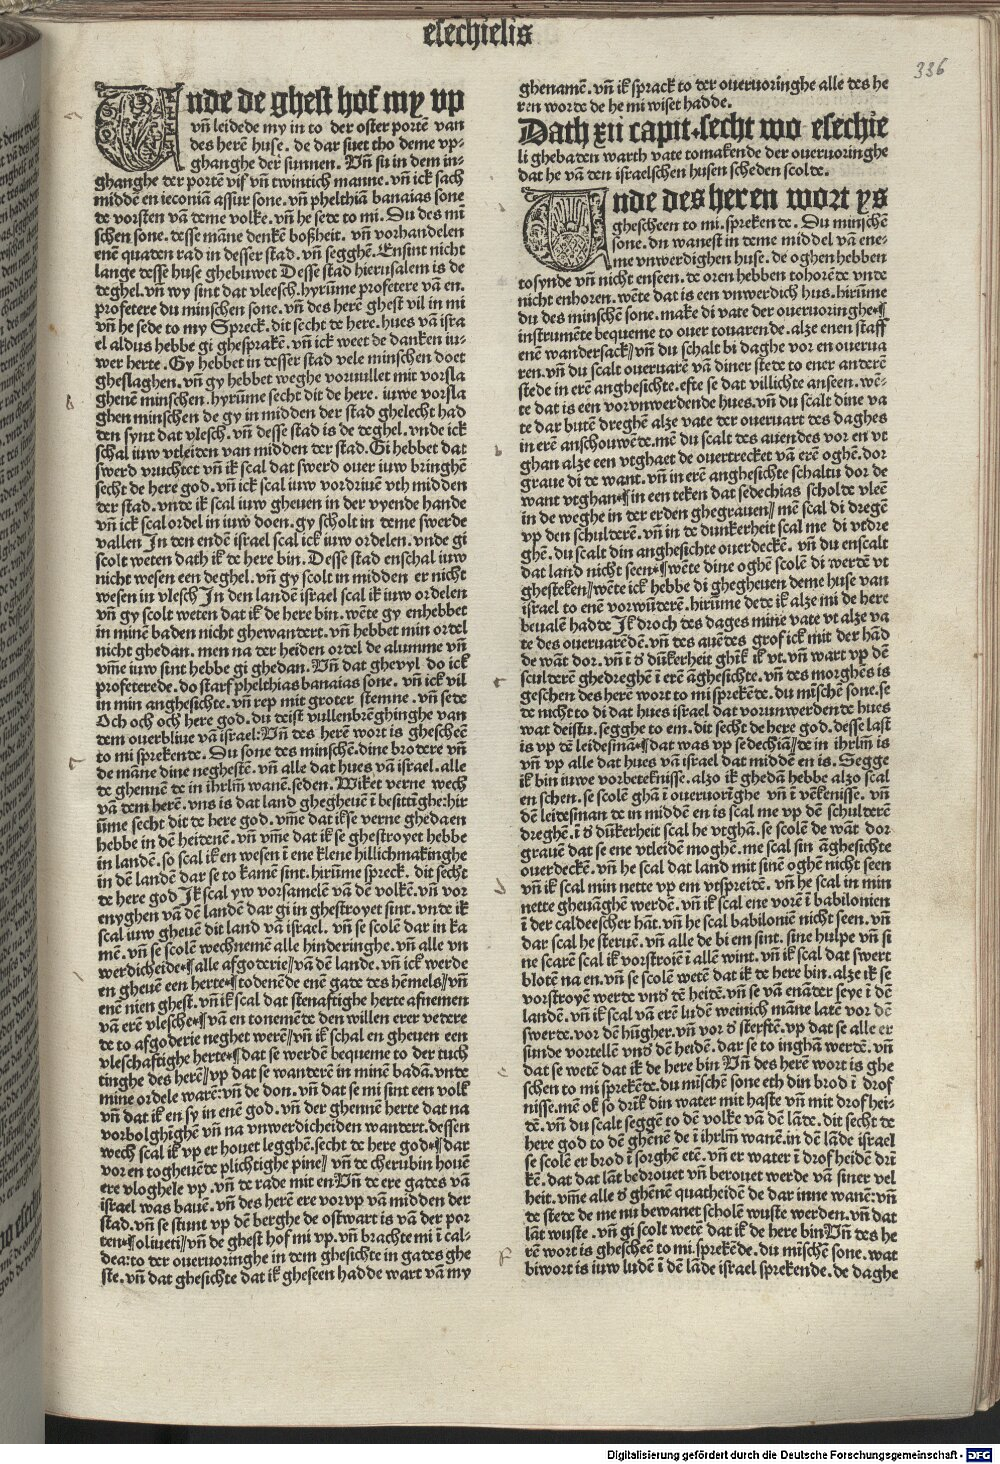 esechielis
336
Unde de ghest hof my vp
vñ leidede my in to der oster portē van
des herē huse. de dar suet tho deme vp-
ghanghe der sunnen. Vñ su in dem in-
ghanghe der portē vif vñ twintich manne. vñ ick sach
middē en ieconiā assur sone. vñ phelthiā banaias sone
de vorsten vā deme volke. vñ he sede to mi. Du des mī
schen sone. desse māne denkē boßheit. vñ vorhandelen
enē quaden rad in desser stad. vñ segghē. Ensint nicht
lange desse huse ghebuwet Desse stad hierusalem is de
deghel. vñ wy sint dat vleesch. hyrūme profetere vā en.
profetere du minschen sone. vñ des herē ghest vil in mi
vñ he sede to my Spreck. dit secht de here. hues vā isra
el aldus hebbe gi ghesprakē. vñ ick weet de danken iu-
wer herte. Gy hebbet in desser stad vele minschen doet
gheslaghen. vñ gy hebbet weghe vorvullet mit vorsla
ghenē minschen. hyrūme secht dit de here. iuwe vorsla
ghen minschen de gy in midden der stad ghelecht had
den synt dat vlesch. vñ desse stad is de deghel. vnde ick
schal iuw vtleiden van midden der stad. Gi hebbet dat
swerd vruchtet vñ ik scal dat swerd ouer iuw bringhē
secht de here god. vñ ick scal iuw vordriuē vth midden
der stad. vnde ik scal iuw gheuen in der vyende hande
vñ ick scal ordel in iuw doen. gy scholt in deme swerde
vallen In den endē israel scal ick iuw ordelen. vnde gi
scolt weten dath ik de here bin. Desse stad enschal iuw
nicht wesen een deghel. vñ gy scolt in midden er nicht
wesen in vlesch In den landē israel scal ik iuw ordelen
vñ gy scolt weten dat ik de here bin. wēte gy enhebbet
in minē baden nicht ghewandert. vñ hebbet min ordel
nicht ghedan. men na der heiden ordel de alumme vñ
vm̄e iuw sint hebbe gi ghedan. Vñ dat ghevyl do ick
profeterede. do starf phelthias banaias sone. vñ ick vil
in min anghesichte. vñ rep mit groter stemne. vñ sede
Och och och here god. du deist vullenbrēghinghe van
dem ouerbliue vā israel: Vñ des herē wort is ghescheē
to mi sprekende. Du sone des minschē. dine brodere vñ
de māne dine neghestē. vñ alle dat hues vā israel. alle
de ghennē de in ihrlm̄ wanē. seden. Wiket verne wech
vā dem herē. vns is dat land ghegheuē ī besittīghe: hir
ūme secht dit de here god. vm̄e dat ik se verne ghedaen
hebbe in dē heidenē. vñ vm̄e dat ik se ghestroyet hebbe
in landē. so scal ik en wesen ī ene klene hillichmakinghe
in dē landē dar se to kamē sint. hirūme spreck. dit secht
de here god Ik scal yw vorsamelē vā dē volkē. vñ vor
enyghen vā dē landē dar gi in ghestroyet sint. vnde ik
scal iuw gheuē dit land vā israel. vñ se scolē dar in ka
mē. vñ se scolē wechnemē alle hinderinghe. vñ alle vn
werdicheide⁌ alle afgoderie// vā dē lande. vñ ick werde
en gheuē een herte⁌ to denē de enē gade des hēmels// vñ
enē nien ghest. vñ ik scal dat stenaftighe herte afnemen
vā erē vlesche⁌ vā en tonemēte den willen erer vedere
de to afgoderie neghet werē// vñ ik schal en gheuen een
vleschaftighe herte⁌ dat se werdē bequeme to der tuch
tinghe des herē// vp dat se wanderē in minē badā. vnde
mine ordele warē: vñ de don. vñ dat se mi sint een volk
vñ dat ik en sy in enē god. vñ der ghennē herte dat na
vorbolghīghē vñ na vnwerdicheiden wandert. dessen
wech scal ik vp er houet legghē. secht de here god⁌ dar
vor en togheuēde plichtighe pine// vñ de cherubin houē
ere vloghele vp. vñ de rade mit en Vñ de ere gades vā
israel was bauē. vñ des herē ere vor vp vā midden der
stad. vñ se stunt vp dē berghe de ostwart is vā der por
ten⁌ oliueti// vñ de ghest hof mi vp. vñ brachte mi ī cal-
dea: to der ouervoringhe in dem ghesichte in gades ghe
ste. vñ dat ghesichte dat ik gheseen hadde wart vā my
ghenamē. vñ ik sprack to der ouervoringhe alle des he
ren worde de he mi wiset hadde.
Dath xii capit. secht wo esechie
li ghebaden warth vate tomakende der ouervoringhe
dat he vā den israelschen husen scheden scolde.
Unde des heren wort ys
ghescheen to mi. sprekende. Du minschē
sone. du wanest in deme middel vā ene-
me vnwerdighen huse. de oghen hebben
to synde vñ nicht enseen. de oren hebben tohorēde vnde
nicht enhoren. wēte dat is een vnwerdich hus. hirūme
du des minschē sone. make di vate der ouervoringhe⁌
instrumēte bequeme to ouer touarende. alze enen staff
enē wandersack// vñ du schalt bi daghe vor en ouerua
ren. vñ du scalt oueruarē vā diner stede to ener anderē
stede in erē anghesichte. efte se dat villichte anseen. wē-
te dat is een vorvnwerdende hues. vñ du scalt dine va
te dar butē dreghē alze vate der oueruart des daghes
in erē anschouwēde. mē du scalt des auendes vor en vt
ghan alze een vtghaet de ouertrecket vā erē oghē. dor
graue di de want. vñ in erē anghesichte schaltu dor de
want vtghan⁌ in een teken dat sedechias scholde vleē
in de weghe in der erden ghegrauen// mē scal di dregē
vp den schulderē. vñ in de dunkerheit scal me di vtdre
ghē. du scalt din anghesichte ouerdeckē. vñ du enscalt
dat land nicht seen⁌ wēte dine oghē scolē di werdē vt
ghesteken// wēte ick hebbe di ghegheuen deme huse van
israel to enē vorwūderē. hirūme dede ik alze mi de here
beualē hadde Ik droch des dages mine vate vt alze va
te des oueruarēdē. vñ des auēdes grof ick mit der hād
de wāt dor. vñ ī ð dūkerheit ghīk ik vt. vñ wart vp dē
sculderē ghedreghē ī erē āghesichte. vñ des morghēs is
geschen des herē wort to mi sprekēde. du mīschē sone. se
de nicht to di dat hues israel dat vorunwerdende hues
wat deistu. segghe to em. dit secht de here god. desse last
is vp dē leidesmā⁌ dat was vp sedechiā// de in ihrlm̄ is
vñ vp alle dat hues vā israel dat middē en is. Segge
ik bin iuwe vorbeteknisse. alzo ik ghedā hebbe alzo scal
en schen. se scolē ghā ī ouervorīghe vñ ī vēkenisse. vñ
dē leidesman de in middē en is scal me vp dē schulderē
dreghē. ī ð dūkerheit scal he vtghā. se scolē de wāt dor
grauē dat se ene vtleidē moghē. me scal sin āghesichte
ouerdeckē. vñ he scal dat land mit sinē oghē nicht seen
vñ ik scal min nette vp em vtspreidē. vñ he scal in min
nette gheuāghē werdē. vñ ik scal ene vorē ī babilonien
ī der caldeescher hāt. vñ he scal babiloniē nicht seen. vñ
dar scal he steruē. vñ alle de bi em sint. sine hulpe vñ si
ne scarē scal ik vorstroiē ī allē wint. vñ ik scal dat swert
blotē na en. vñ se scolē wetē dat ik de here bin. alze ik se
vorstroyē werde vnð dē heidē. vñ se vā enāder seye ī dē
landē. vñ ik scal vā erē ludē weinich māne latē vor dē
swerde. vor dē hūgher. vñ vor ð sterftē. vp dat se alle er
sunde vortellē vnð dē heidē. dar se to inghā werdē. vñ
dat se wetē dat ik de here bin Vñ des herē wort is ghe
schen to mi sprekēde. du mīschē sone eth din brod ī drof
nisse. mē ok so drīk din water mit haste vñ mit drofhei-
dē. vñ du scalt seggē to dē volke vā dē lāde. dit secht de
here god to dē ghēnē de ī ihrlm̄ wanē. in dē lāde israel
se scolē er brod ī sorghē etē. vñ er water ī drofheidē drī
kē. dat dat lāt bedrouet vñ berouet werde vā siner vel
heit. vm̄e alle ð ghēnē quatheidē de dar inne wanē: vñ
de stede de me nu bewanet scholē wuste werden. vñ dat
lāt wuste. vñ gi scolt wetē dat ik de here bin Vñ des he
rē wort is ghescheē to mi. sprekēde. du mīschē sone. wat
biwort is iuw ludē ī dē lāde israel sprekende. de daghe
Digitalisierung gefördert durch die Deutsche Forschungsgemeinschaft - DFG